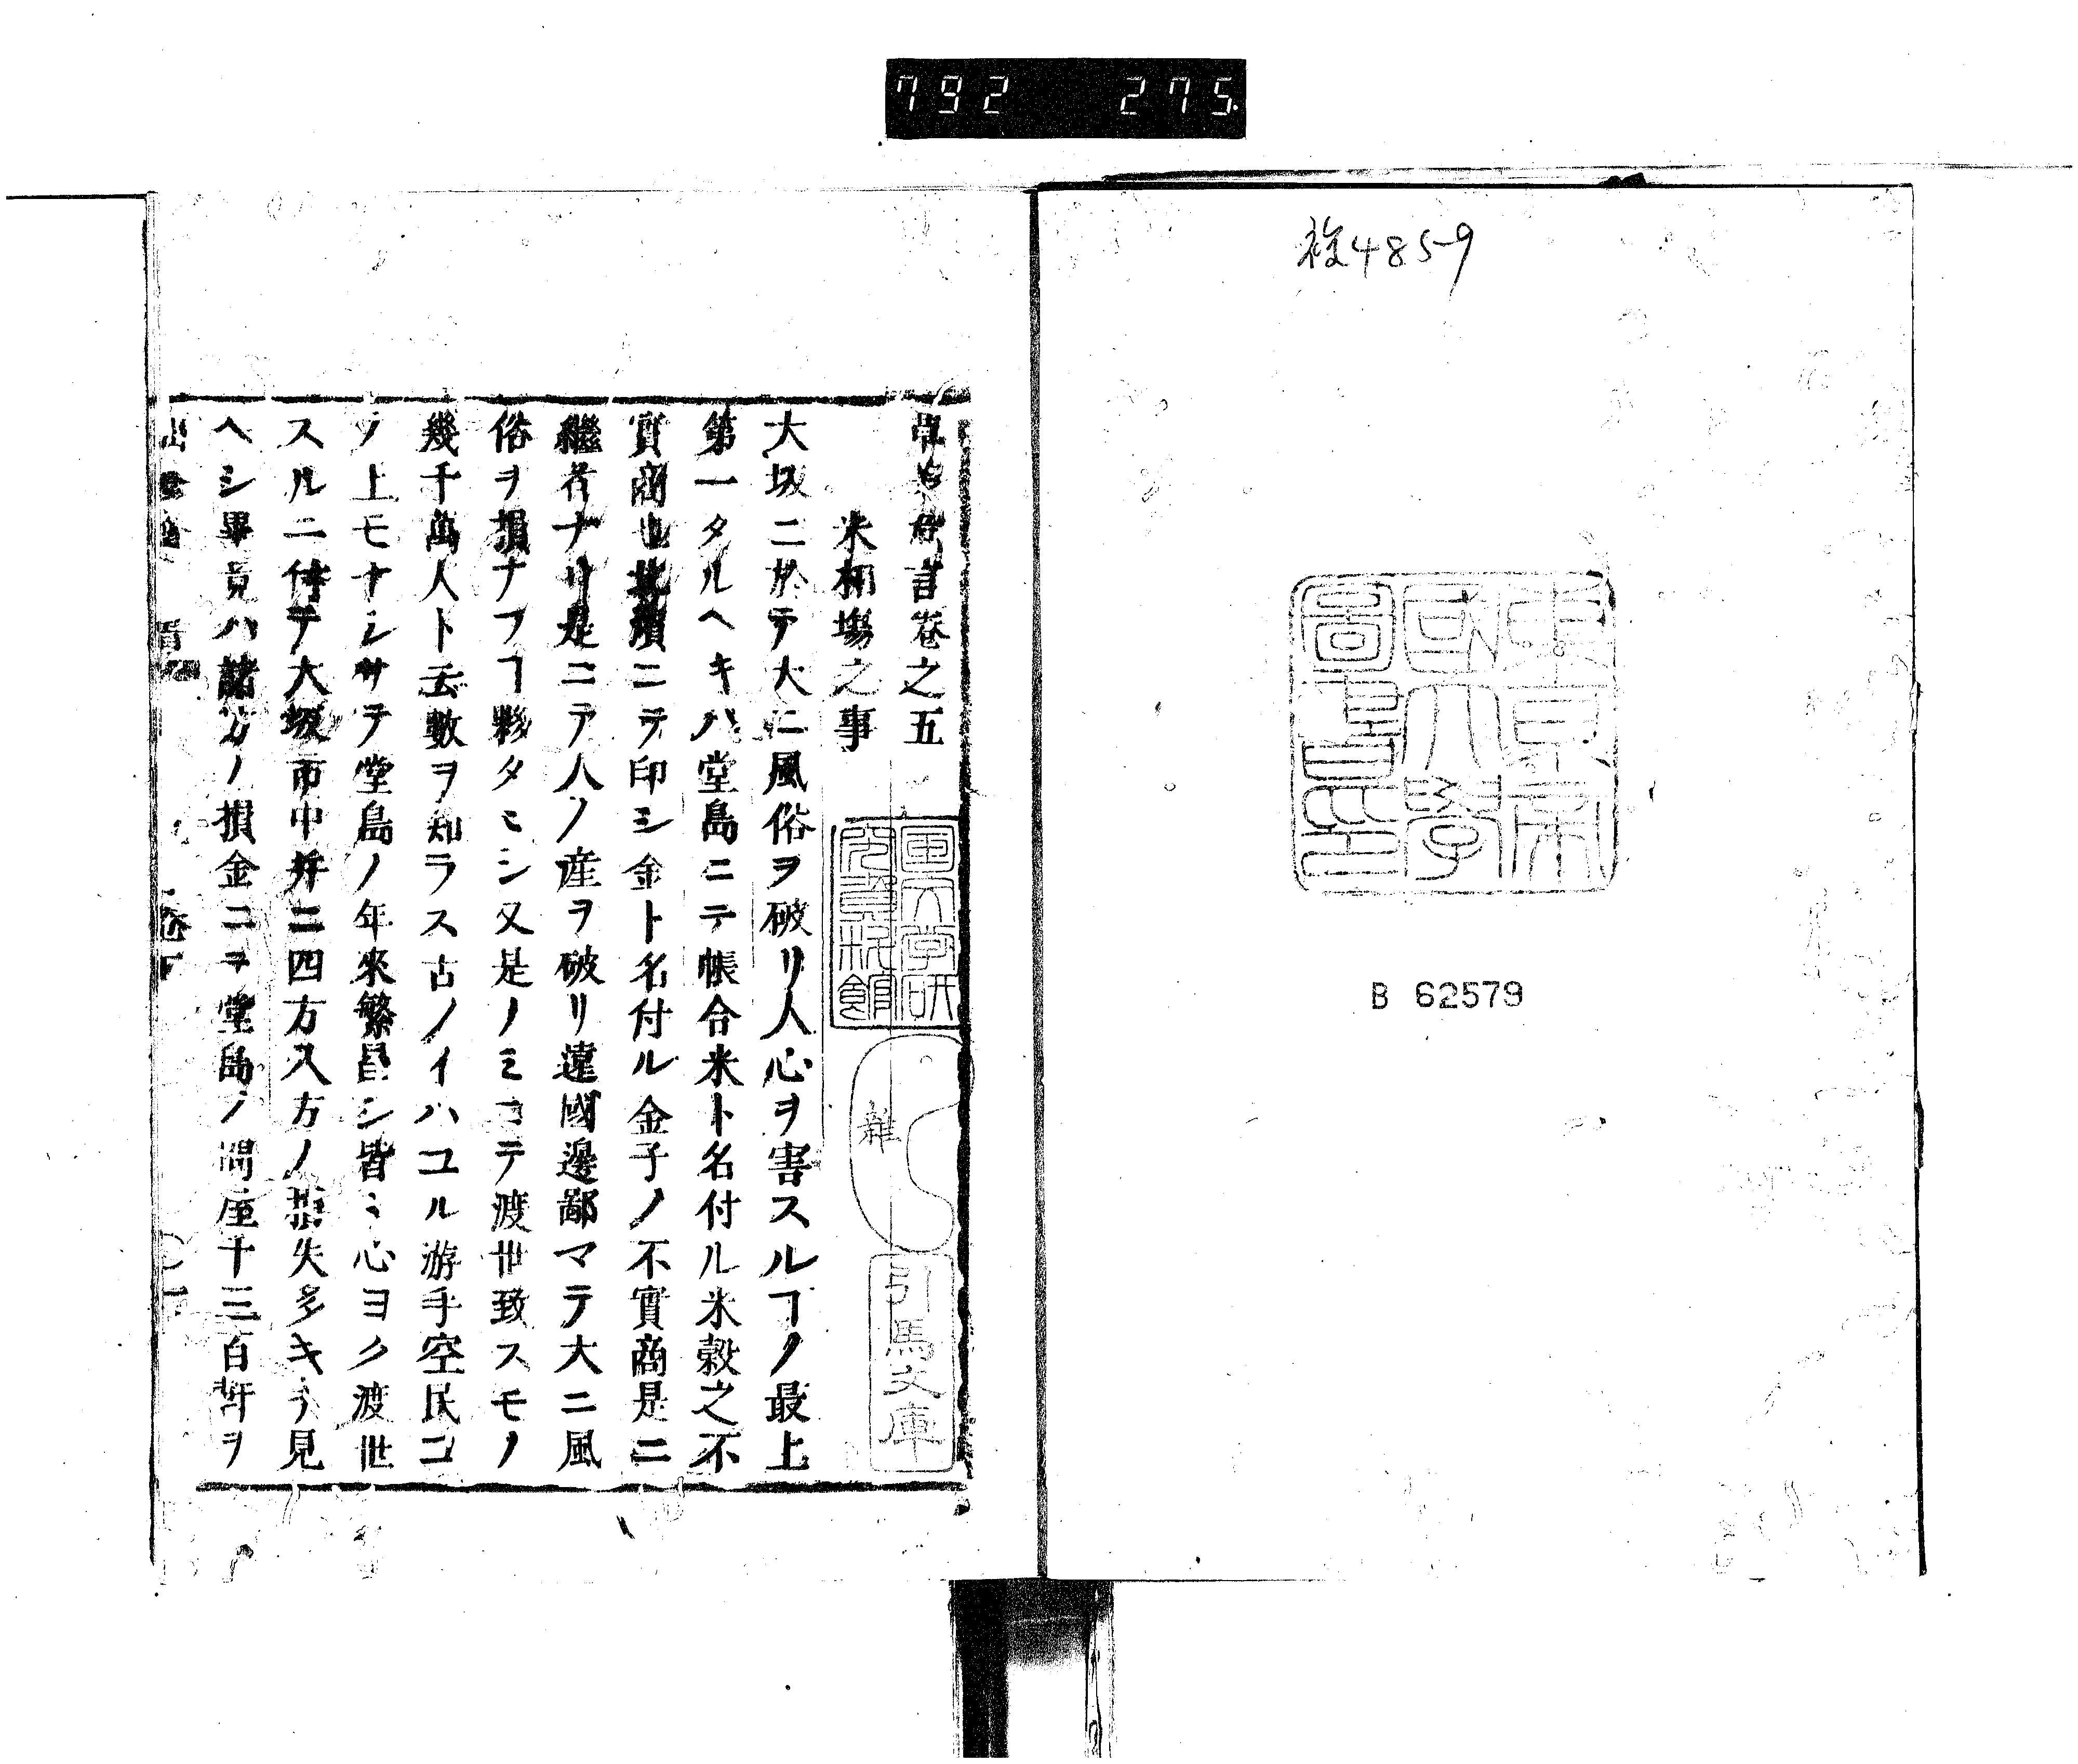 792 275
複4859
東京帝
国大學
圖書印
B 62579
草茅危言卷之五
米相塲之事
大坂ニ於テ大ニ風俗ヲ破リ人心ヲ害スルヿノ最上
第一タルヘキハ堂島ニテ帳合米ト名付ル米穀之不
實商也北濱ニテ印シ金ト名付ル金子ノ不實商是ニ
繼者ナリ是ニテ人ノ産ヲ破リ遠國邊鄙マテ大ニ風
俗ヲ損ナフヿ夥タヾシ又是ノミニテ渡世致スモノ
幾千萬人ト云數ヲ知ラス古ノイハユル游手空民コ
ノ上モナシサテ堂島ノ年來繁昌シ皆〻心ヨク渡世
スルニ付テ大坂市中并ニ四方入方ノ損失多キヲ見
ヘシ畢竟ハ諸方ノ損金ニテ堂島ノ問屋千三百軒ヲ
雜
引馬文庫